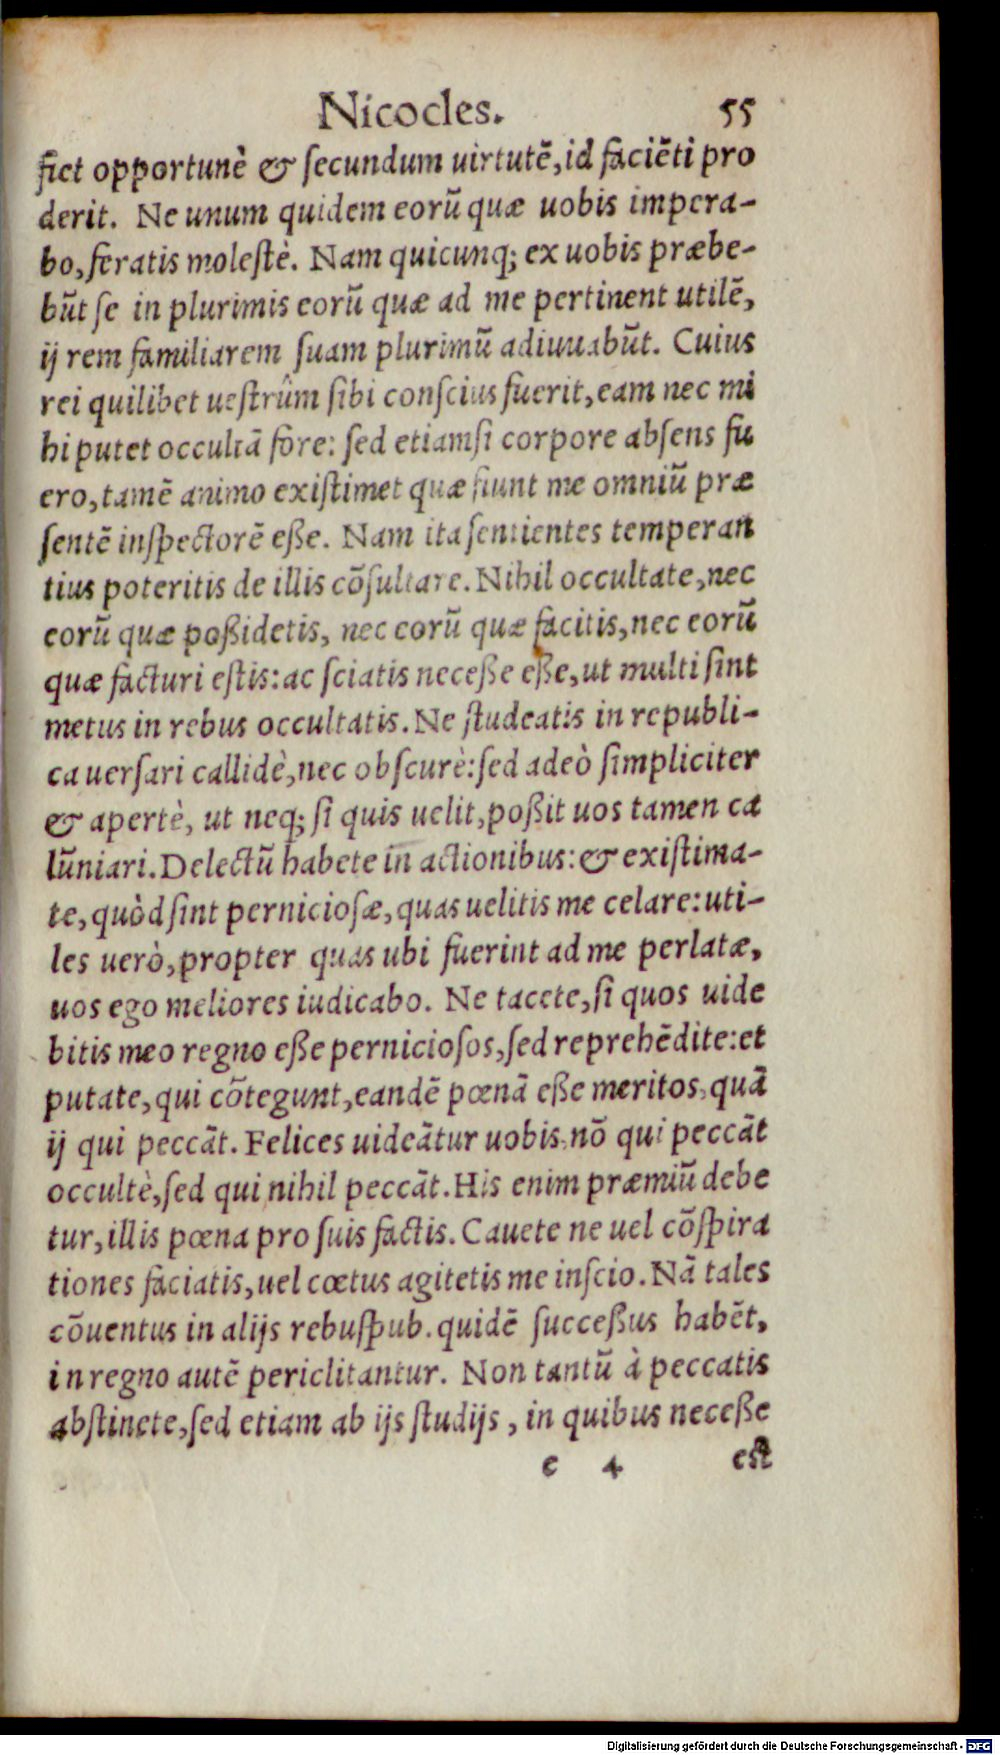 Nicocles. 55
fiet opportunè & ſecundum uirtutẽ, id faciẽti pro
derit. Ne unum quidem eorũ quæ uobis impera-
bo, feratis moleſtè. Nam quicunq; ex uobis præbe-
bũt ſe in plurimis eorũ quæ ad me pertinent utilẽ,
ij rem familiarem ſuam plurimũ adiuuabũt. Cuius
rei quilibet ueſtrûm ſibi conſcius fuerit, eam nec mi
hi putet occultã fore: ſed etiamſi corpore abſens fu
ero, tamẽ animo exiſtimet quæ fiunt me omniũ præ
ſentẽ inſpectorẽ eße. Nam ita ſentientes temperan
tius poteritis de illis cõſultare. Nihil occultate, nec
eorũ quæ poßidetis, nec eorũ quæ facitis, nec eorũ
quæ facturi eſtis: ac ſciatis neceße eße, ut multi ſint
metus in rebus occultatis. Ne ſtudeatis in republi-
ca uerſari callidè, nec obſcurè: ſed adeò ſimpliciter
& apertè, ut neq; ſi quis uelit, poßit uos tamen ca
lũniari. Delectũ habete in actionibus: & exiſtima-
te, quòd ſint pernicioſæ, quas uelitis me celare: uti-
les uerò, propter quas ubi fuerint ad me perlatæ,
uos ego meliores iudicabo. Ne tacete, ſi quos uide
bitis meo regno eße pernicioſos, ſed reprehẽdite: et
putate, qui cõtegunt, eandẽ pœnã eße meritos, quã
ij qui peccãt. Felices uideãtur uobis, nõ qui peccãt
occultè, ſed qui nihil peccãt. His enim præmiũ debe
tur, illis pœna pro ſuis factis. Cauete ne uel cõſpira
tiones faciatis, uel cœtus agitetis me inſcio. Nã tales
cõuentus in alijs rebuſpub. quidẽ ſucceßus habẽt,
in regno autẽ periclitantur. Non tantũ à peccatis
abſtinete, ſed etiam ab ijs ſtudijs, in quibus neceße
e 4 eſt
Digitalisierung gefördert durch die Deutsche Forschungsgemeinschaft - DFG